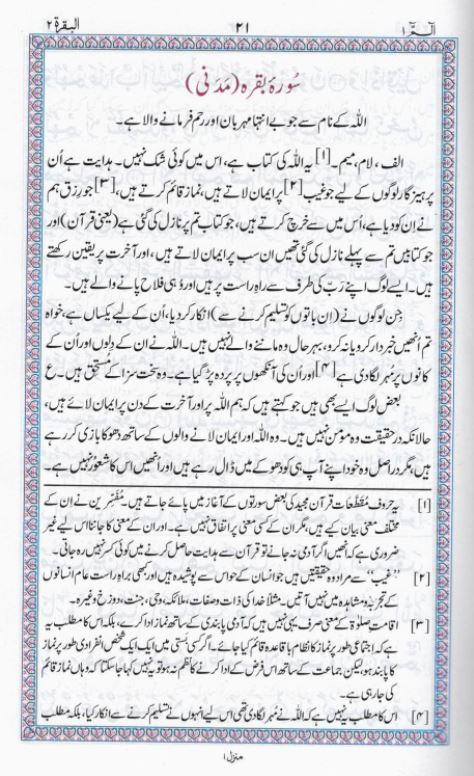 الٓـمّٓ ۱
۲۱
البقرۃ ۲
سُورۂ بقرہ (مَدَنی)
اللہ کے نام سے جو بے انتہا مہربان اور رحم فرمانے والا ہے۔
الف، لام، میم۔[۱] یہ اللہ کی کتاب ہے، اس میں کوئی شک نہیں۔ ہدایت ہے اُن
پرہیز گار لوگوں کے لیے جو غیب[۲] پر ایمان لاتے ہیں، نماز قائم کرتے ہیں،[۳] جو رزق ہم
نے اِن کو دیا ہے، اُس میں سے خرچ کرتے ہیں، جو کتاب تم پر نازل کی گئی ہے (یعنی قرآن) اور
جو کتابیں تم سے پہلے نازل کی گئی تھیں ان سب پر ایمان لاتے ہیں، اور آخرت پر یقین رکھتے
ہیں۔ ایسے لوگ اپنے رَبّ کی طرف سے راہِ راست پر ہیں اور وُہی فلاح پانے والے ہیں۔
جِن لوگوں نے (اِن باتوں کو تسلیم کرنے سے) انکار کر دیا، اُن کے لیے یکساں ہے، خواہ
تم انھیں خبردار کرو یا نہ کرو، بہر حال وہ ماننے والے نہیں ہیں۔ اللہ نے ان کے دِلوں اور اُن کے
کانوں پر مُہر لگا دی ہے[۴] اور اُن کی آنکھوں پر پردہ پڑ گیا ہے۔ وہ سخت سزا کے مُستحق ہیں۔ع
بعض لوگ ایسے بھی ہیں جو کہتے ہیں کہ ہم اللہ پر اور آخرت کے دن پر ایمان لائے ہیں،
حالانکہ در حقیقت وہ مؤمن نہیں ہیں۔ وہ اللہ اور ایمان لانے والوں کے ساتھ دھوکا بازی کر رہے
ہیں، مگر دراصل وہ خود اپنے آپ ہی کو دھوکے میں ڈال رہے ہیں اور انھیں اس کا شعور نہیں ہے۔
[۱] یہ حروفِ مُقطّعات قرآن مجید کی بعض سورتوں کے آغاز میں پائے جاتے ہیں۔ مفسّرین نے اِن کے
مختلف معنی بیان کیے ہیں، مگر ان کے کسی معنی پر اتفاق نہیں ہے۔ اور ان کے معنی کا جاننا اس لیے غیر
ضروری ہے کہ انھیں اگر آدمی نہ جانے تو قرآن سے ہدایت حاصل کرنے میں کوئی کسر نہیں رہ جاتی۔
[۲] ”غیب“ سے مراد وہ حقیقتیں ہیں جو انسان کے حواس سے پوشیدہ ہیں اور کبھی براہِ راست عام انسانوں
کے تجربہ و مشاہدہ میں نہیں آتیں۔ مثلاً خدا کی ذات و صفات، ملائکہ، وحی، جنت، دوزخ وغیرہ۔
[۳] اقامتِ صلوٰۃ کے معنی صرف یہی نہیں ہیں کہ آدمی پابندی کے ساتھ نماز ادا کرے، بلکہ اس کا مطلب یہ
ہے کہ اجتماعی طور پر نماز کا نظام باقاعدہ قائم کیا جائے۔ اگر کسی بستی میں ایک ایک شخص انفرادی طور پر نماز
کا پابند ہو، لیکن جماعت کے ساتھ اس فرض کے ادا کرنے کا نظم نہ ہو تو یہ نہیں کہا جا سکتا کہ وہاں نماز قائم
کی جا رہی ہے۔
[۴] اس کا مطلب یہ نہیں ہے کہ اللہ نے مُہر لگا دی تھی اس لیے انہوں نے تسلیم کرنے سے انکار کیا، بلکہ مطلب
منزل ۱